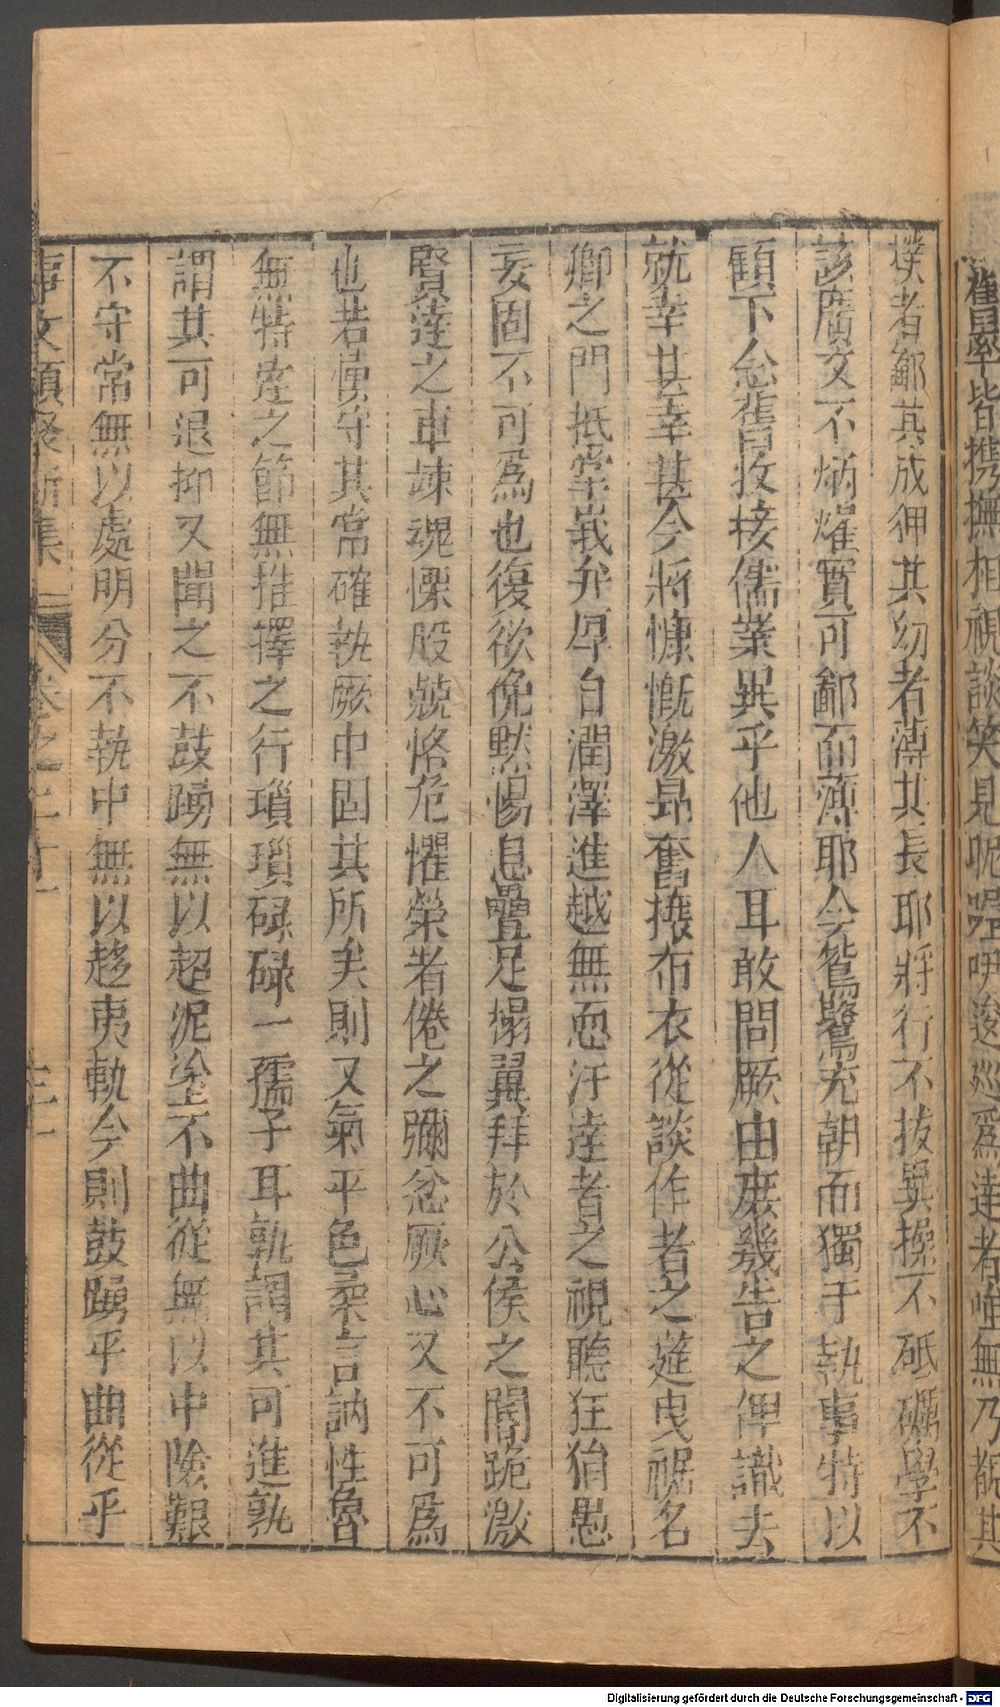 舊學皆携撫相視談笑見呢噔吚逡巡爲達者唯無乃覩其
樸者鄙其成狎其㓜者薄其長耶將行不拔異操不砥礪學不
該廣文不炳燿實可鄙而薄耶今鴛鷺充朝而獨于執事特以
顧下念舊收接儒業異乎他人耳敢問厥由庶幾告之俾識去
就幸甚幸甚今將慷慨激昻奮攘布衣從談作者之筵曳裾名
卿之門抵掌峩弁厚自潤澤進越無恧汙達者之視聽狂狷愚
妄固不可爲也復欲俛默惕息疊足榻翼拜於公侯之閽跪激
賢達之車竦魂慄股兢恪危懼榮者倦之彌忿厥心又不可爲
也若愼守其常確執厥中固其所矣則又氣平色柔言訥性魯
無特達之節無推擇之行瑣瑣碌碌一孺子耳孰謂其可進孰
謂其可退抑又聞之不鼓踴無以超泥塗不曲從無以中險艱
不守常無以處明分不執中無以趍夷軌今則鼓踴乎曲從乎
事文類聚新集 卷之二十一 三十一
Digitalisierung gefördert durch die Deutsche Forschungsgemeinschaft - DFG